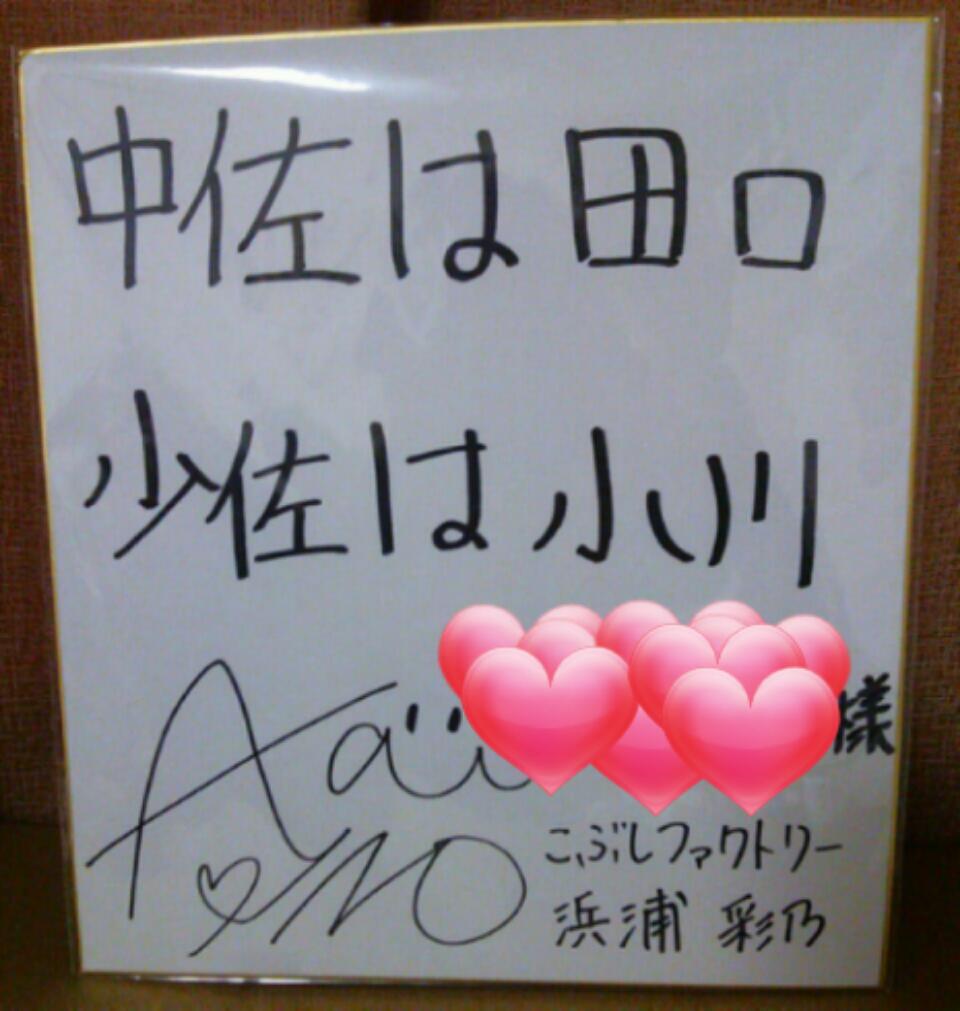 中佐は田口
少佐は小川
様
こぶしファクトリー
浜浦 彩乃